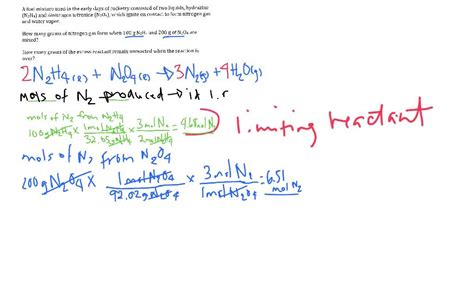 A fuel mixture used in the early days of rocketry consisted of two liquids, hydrazine
(N₂H₄) and dinitrogen tetroxide (N₂O₄), which ignite on contact to form nitrogen gas
and water vapor.
How many grams of nitrogen gas form when 100 g N₂H₄ and 200 g of N₂O₄ are
mixed?
How many grams of the excess reactant remain unreacted when the reaction is
over?
2N₂H₄(l) + N₂O₄(l) → 3N₂(g) + 4H₂O(g)
mols of N₂ produced → id l.r
mols of N₂ from N₂H₄
100g N₂H₄ × 1 mol N₂H₄ / 32.05g N₂H₄ × 3 mol N₂ / 2 mol N₂H₄ = 4.68 mol N₂
limiting reactant
mols of N₂ from N₂O₄
200g N₂O₄ × 1 mol N₂O₄ / 92.02g N₂O₄ × 3 mol N₂ / 1 mol N₂O₄ = 6.51 mol N₂